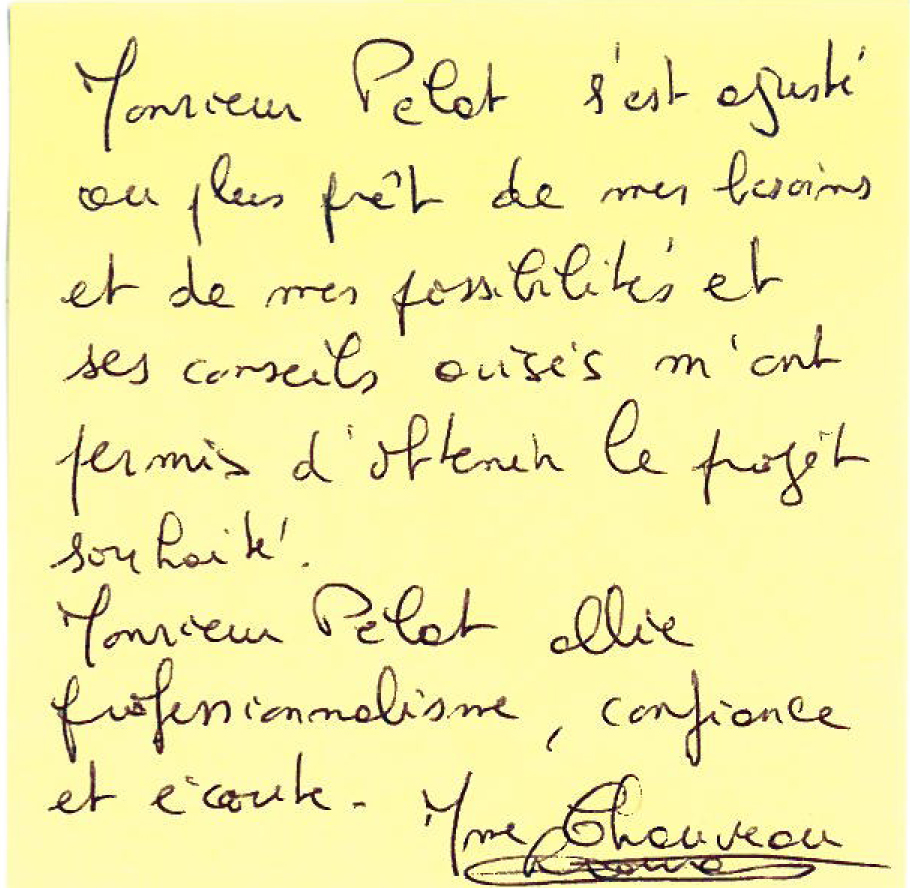 Monsieur Pelat s'est ajusté
au plus prêt de mes besoins
et de mes possibilités et
ses conseils avisés m'ont
permis d'obtenir le projet
souhaité.
Monsieur Pelat allie
professionnalisme, confiance
et écoute. Mme Chauveau